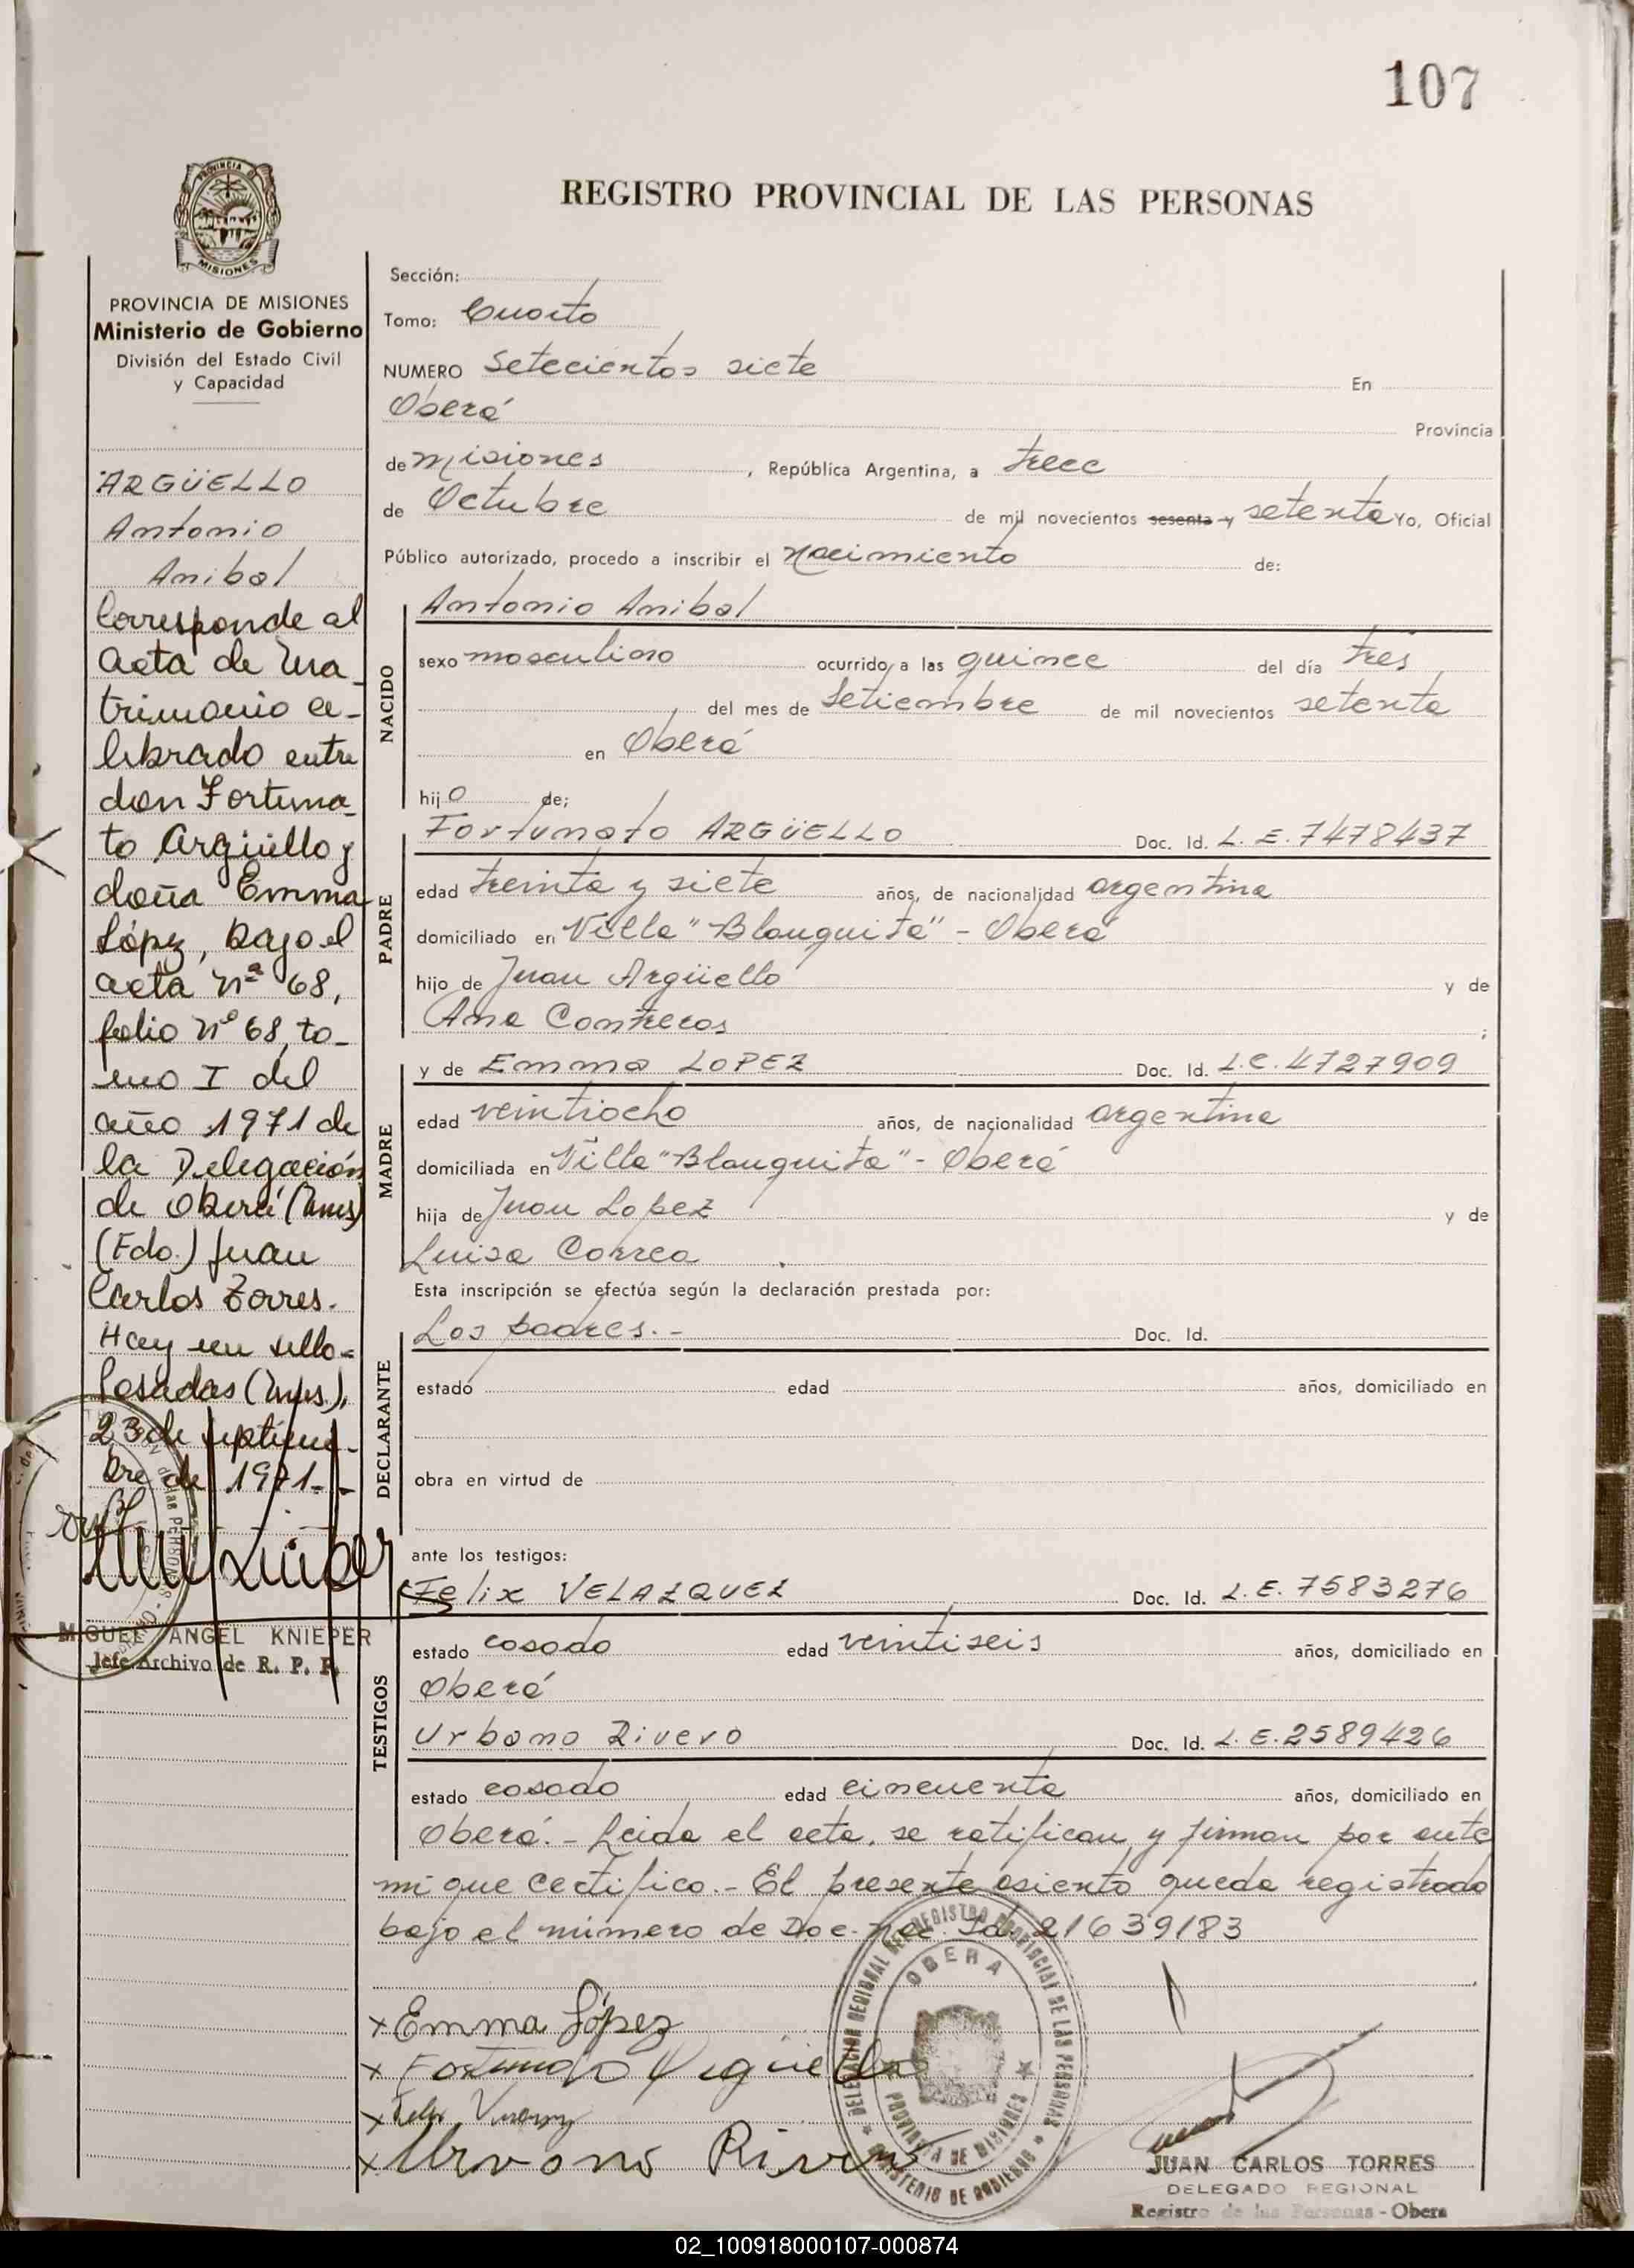 107
PROVINCIA DE
MISIONES
REGISTRO PROVINCIAL DE LAS PERSONAS
PROVINCIA DE MISIONES
Ministerio de Gobierno
División del Estado Civil
y Capacidad
ARGÜELLO
Antonio
Anibal
Corresponde al
acta de ma-
trimonio ce-
lebrado entre
don Fortuna-
to Argüello y
doña Emma
López, bajo el
acta nº 68,
folio nº 68, to-
mo I del
año 1971 de
la Delegación
de Oberá (Mnes)
(Fdo.) Juan
Carlos Torres.
Hay un sello-
Posadas (Mnes),
23 de septiem-
bre de 1971.-
MIGUEL ANGEL KNIEPER
Jefe Archivo de R. P. P.
Sección:
Tomo: Cuarto
NUMERO Setecientos siete En
Oberá Provincia
de Misiones, República Argentina, a trece
de Octubre de mil novecientos sesenta y setenta Yo, Oficial
Público autorizado, procedo a inscribir el Nacimiento de:
NACIDO
Antonio Anibal
sexo masculino ocurrido a las quince del día tres
del mes de Setiembre de mil novecientos setenta
en Oberá
hijo de;
PADRE
Fortunato ARGÜELLO Doc. Id. L.E. 7478437
edad treinta y siete años, de nacionalidad argentina
domiciliado en Villa "Blanquita" - Oberá
hijo de Juan Argüello y de
Ana Contreras;
MADRE
y de Emma LOPEZ Doc. Id. L.C. 4727909
edad veintiocho años, de nacionalidad argentina
domiciliada en Villa "Blanquita" - Oberá
hija de Juan Lopez y de
Luisa Correa
Esta inscripción se efectúa según la declaración prestada por:
DECLARANTE
Los padres.- Doc. Id.
estado edad años, domiciliado en
obra en virtud de
ante los testigos:
TESTIGOS
Felix VELAZQUEZ Doc. Id. L.E. 7583276
estado casado edad veintiseis años, domiciliado en
Oberá
Urbano Rivero Doc. Id. L.E. 2589426
estado casado edad cincuenta años, domiciliado en
Oberá.- Leida el acta, se ratifican y firman por ante
mi que certifico.- El presente asiento queda registrado
bajo el número de Doc. Nac. Id. 21639183
x Emma López
x Fortunato Argüello
x Felix
x Urvano Rivero
DELEGACION REGIONAL DEL REGISTRO PROVINCIAL DE LAS PERSONAS
OBERA
PROVINCIA DE MISIONES
MINISTERIO DE GOBIERNO
JUAN CARLOS TORRES
DELEGADO REGIONAL
Registro de las Personas - Obera
02_100918000107-000874